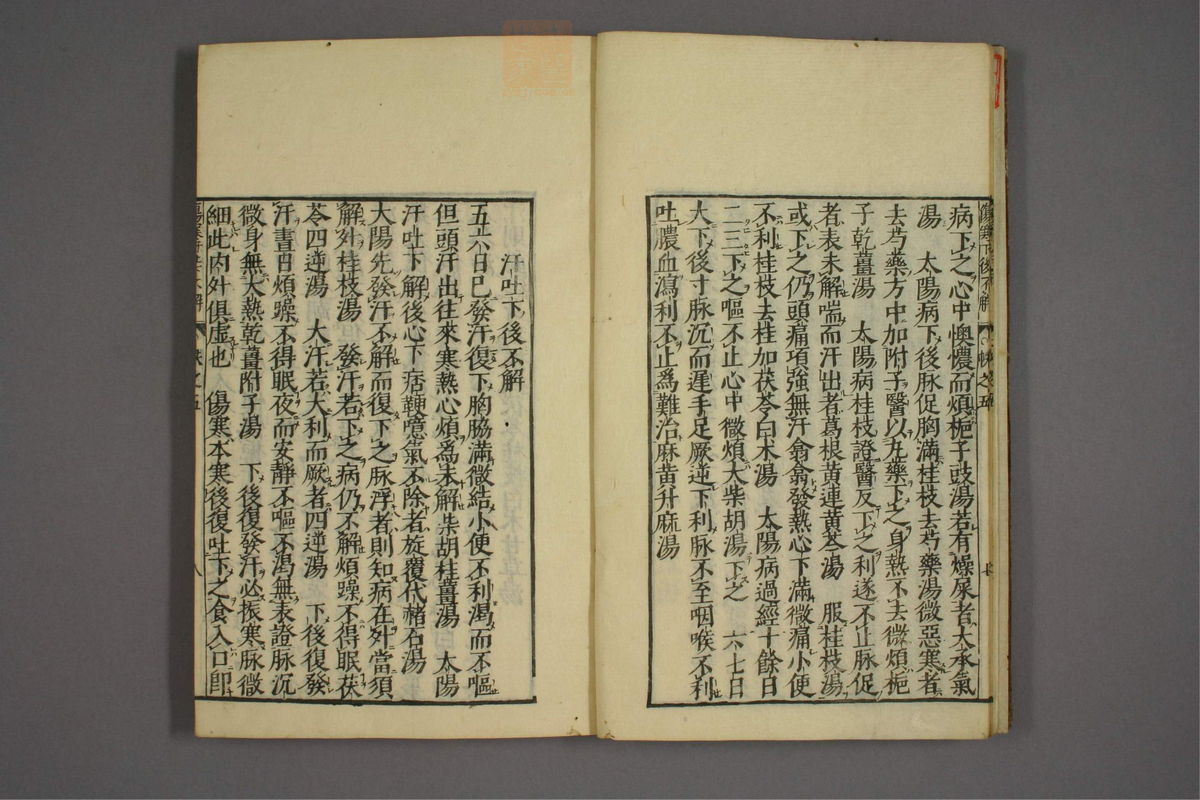 病下之心中懊憹而煩梔子豉湯若有燥屎者大承氣
湯　太陽病下後脉促胸滿桂枝去芍藥湯微惡寒者
去芍藥方中加附子醫以丸藥下之身熱不去微煩梔
子乾薑湯　太陽病桂枝證醫反下之利遂不止脉促
者表未解喘而汗出者葛根黄連黄芩湯　服桂枝湯
或下之仍頭痛項強無汗翕翕發熱心下滿微痛小便
不利桂枝去桂加茯苓白术湯　太陽病過經十餘日
二三下之嘔不止心中微煩大柴胡湯下之　六七日
大下後寸脉沉而遲手足厥逆下利脉不至咽喉不利
吐膿血瀉利不止爲難治麻黄升麻湯
汗吐下後不解
五六日已發汗復下胸脇滿微結小便不利渴而不嘔
但頭汗出往來寒熱心煩爲未解柴胡桂薑湯　太陽
汗吐下解後心下痞鞕噫氣不除者旋覆代赭石湯
大陽先發汗不解而復下之脉浮者則知病在外當須
解外桂枝湯　發汗若下之病仍不解煩躁不得眠茯
苓四逆湯　大汗若大利而厥者四逆湯　下後復發
汗晝日煩躁不得眠夜而安靜不嘔不渴無表證脉沉
微身無大熱乾薑附子湯　下後復發汗必振寒脉微
細此内外俱虚也　傷寒本寒後復吐下之食入口即